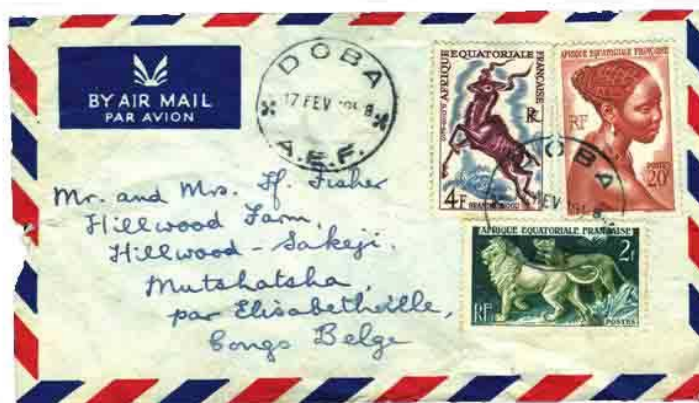 BY AIR MAIL
PAR AVION
DOBA
17 FEV 1958
A.E.F.
AFRIQUE EQUATORIALE FRANÇAISE
RF
4F
GRAND KOUDOU
AFRIQUE EQUATORIALE FRANÇAISE
RF
POSTES
20F
DOBA
AFRIQUE EQUATORIALE FRANÇAISE
2F
RF
POSTES
Mr. and Mrs. ff. Fisher
Hillwood Farm,
Hillwood - Sakeji,
Mutshatsha,
par Elisabethville,
Congo Belge